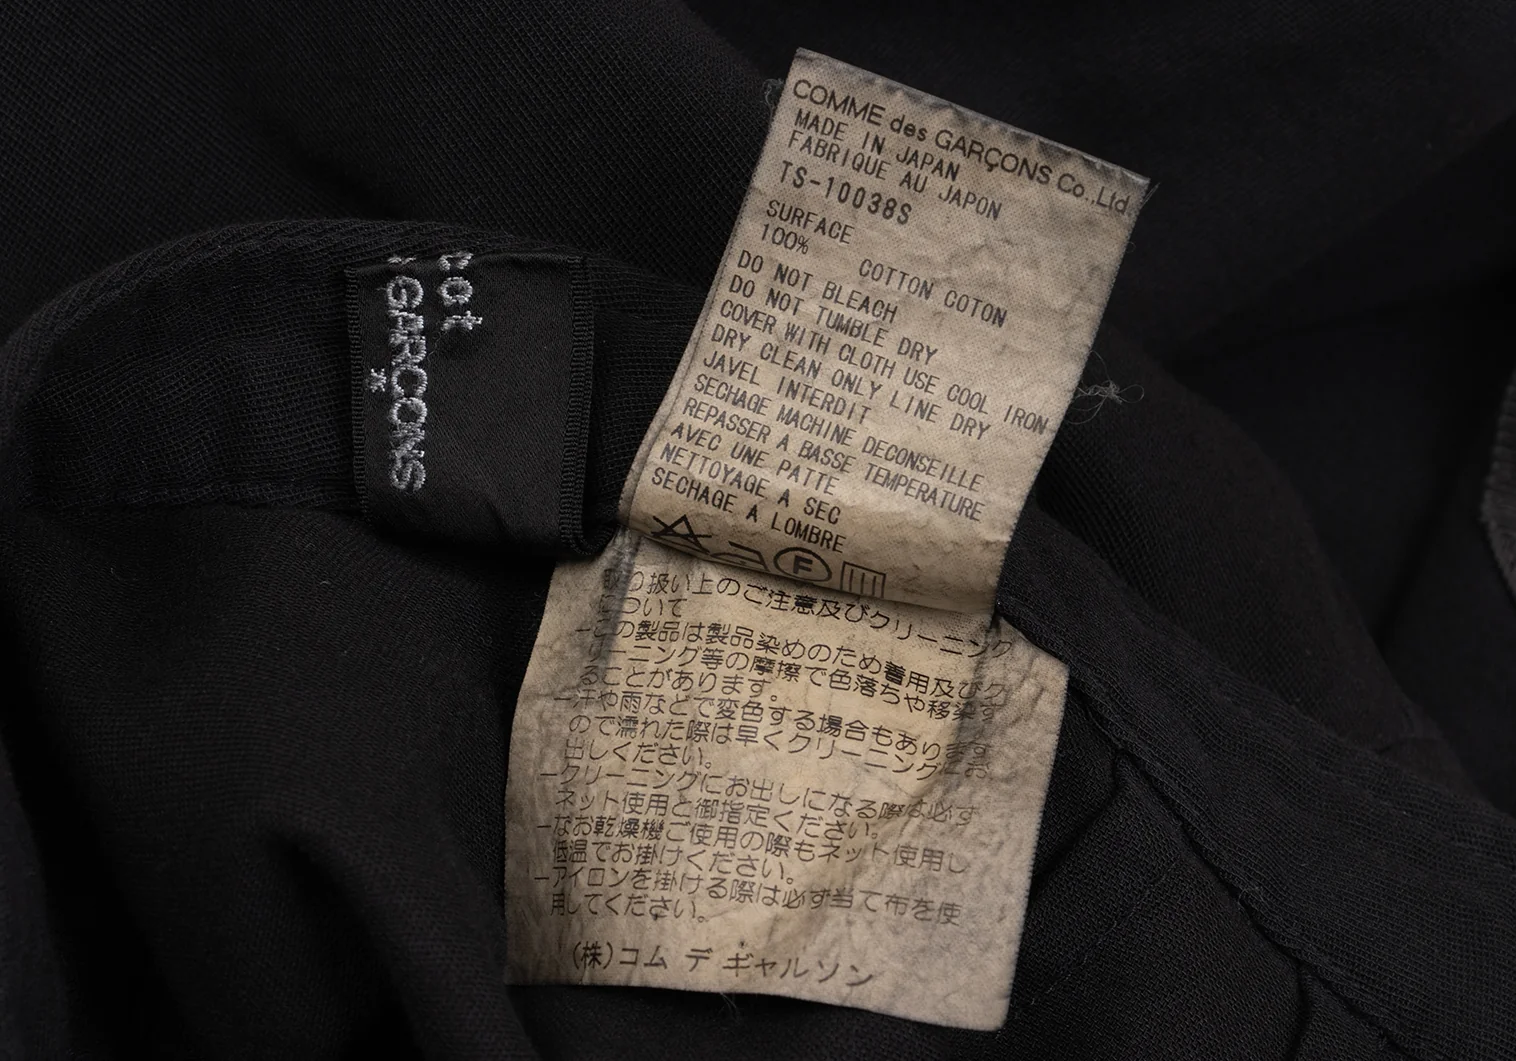 cot
GARÇONS
COMME des GARÇONS Co.,Ltd.
MADE IN JAPAN
FABRIQUE AU JAPON
TS-10038S
SURFACE
100% COTTON COTON
DO NOT BLEACH
DO NOT TUMBLE DRY
COVER WITH CLOTH USE COOL IRON
DRY CLEAN ONLY LINE DRY
JAVEL INTERDIT
SECHAGE MACHINE DECONSEILLE
REPASSER A BASSE TEMPERATURE
AVEC UNE PATTE
NETTOYAGE A SEC
SECHAGE A LOMBRE
F
取り扱い上のご注意及びクリーニング
について
ーこの製品は製品染めのため着用及びク
リーニング等の摩擦で色落ちや移染す
ることがあります。
ー汗や雨などで変色する場合もあります
ので濡れた際は早くクリーニングにお
出しください。
ークリーニングにお出しになる際は必ず
ネット使用と御指定ください。
ーなお乾燥機ご使用の際もネット使用し
低温でお掛けください。
ーアイロンを掛ける際は必ず当て布を使
用してください。
(株)コム デ ギャルソン